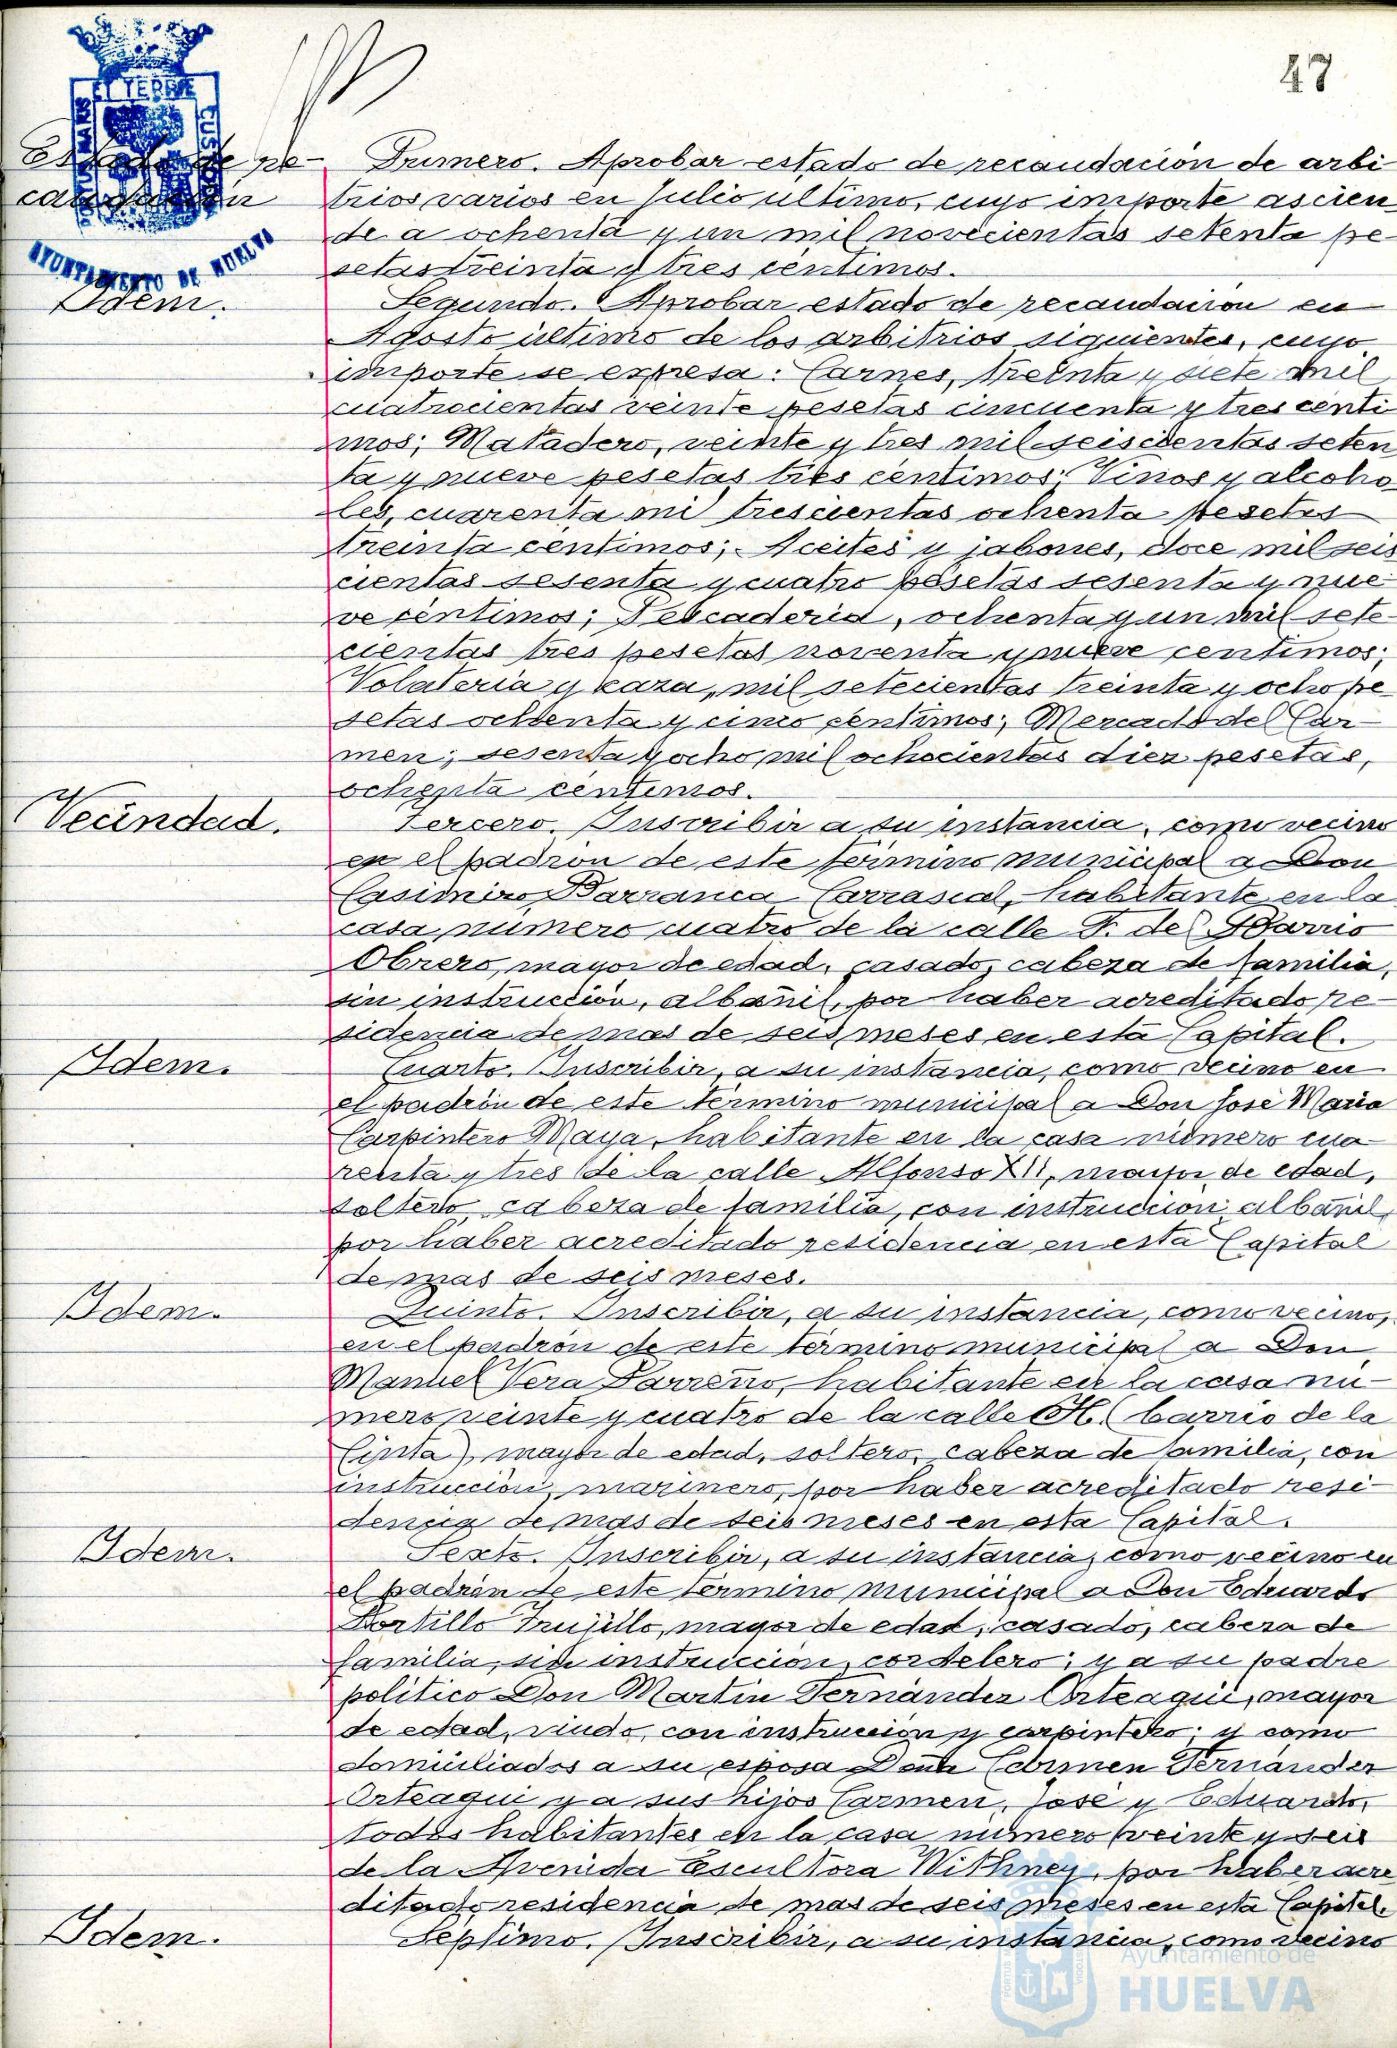 47
Estado de re-
caudación
AYUNTAMIENTO DE HUELVA
Primero. Aprobar estado de recaudación de arbi
trios varios en Julio ultimo, cuyo importe ascien
de a ochenta y un mil novecientas setenta pe
setas treinta y tres centimos.
Idem.
Segundo. Aprobar estado de recaudacion en
Agosto último de los arbitrios siguientes, cuyo
importe se expresa: Carnes, treinta y siete mil
cuatrocientas veinte pesetas cincuenta y tres centi
mos; Matadero, veinte y tres mil seiscientas seten
ta y nueve pesetas tres centimos; Vinos y alcoho
les, cuarenta mil trescientas ochenta pesetas
treinta centimos; Aceites y jabones, doce mil seis
cientas sesenta y cuatro pesetas sesenta y nue
ve centimos; Pescaderia, ochenta y un mil sete-
cientas tres pesetas noventa y nueve centimos;
Volateria y kaza, mil setecientas treinta y ocho pe
setas ochenta y cinco centimos; Mercado del Car-
men; sesenta y ocho mil ochocientas diez pesetas,
ochenta centimos.
Vecindad.
Tercero. Inscribir a su instancia, como vecino
en el padron de este término municipal a Don
Casimiro Barranca Carrascal, habitante en la
casa número cuatro de la calle F. del Barrio
Obrero, mayor de edad, casado, cabeza de familia,
sin instrucción, albañil, por haber acreditado re-
sidencia de mas de seis meses en esta Capital.
Idem.
Cuarto. Inscribir, a su instancia, como vecino en
el padrón de este término municipal a Don José Maria
Carpintero Maya, habitante en la casa número cua
renta y tres de la calle Alfonso XII, mayor de edad,
soltero, cabeza de familia, con instruccion, albañil,
por haber acreditado residencia en esta Capital
de mas de seis meses.
Idem.
Quinto. Inscribir, a su instancia, como vecino,
en el padrón de este término municipal a Don
Manuel Vera Parreño, habitante en la casa nú-
mero veinte y cuatro de la calle H. (barrio de la
Cinta), mayor de edad, soltero, cabeza de familia, con
instrucción, marinero, por haber acreditado resi-
dencia de mas de seis meses en esta Capital.
Idem.
Sexto. Inscribir, a su instancia, como vecino en
el padrón de este término municipal a Don Eduardo
Portillo Trujillo, mayor de edad, casado, cabeza de
familia, sin instruccion, cordelero; y a su padre
político Don Martin Fernández Orteaqui, mayor
de edad, viudo, con instrucción y carpintero; y como
domiciliados a su esposa Doña Carmen Fernández
Orteaqui y a sus hijos Carmen, José y Eduardo,
todos habitantes en la casa número veinte y seis
de la Avenida Escultora Withney, por haber acre
ditado residencia de mas de seis meses en esta Capital.
Idem.
Septimo. Inscribir, a su instancia, como vecino
Ayuntamiento de
HUELVA